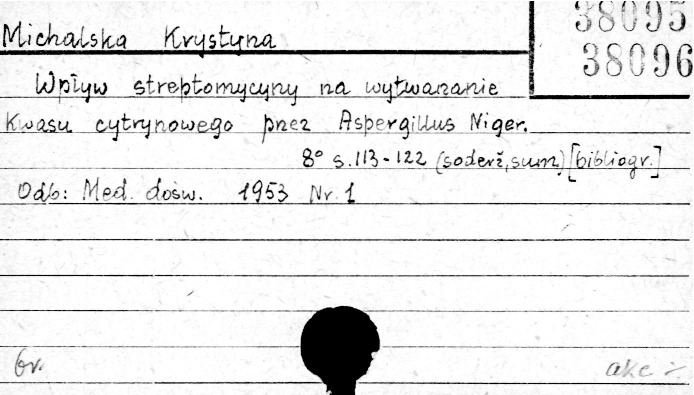 38095
38096
Michalska Krystyna
Wpływ streptomycyny na wytwarzanie
Kwasu cytrynowego przez Aspergillus Niger.
8° s. 113-122 (soderž, sum) [bibliogr.]
Odb: Med. dośw. 1953 Nr. 1
br. akc